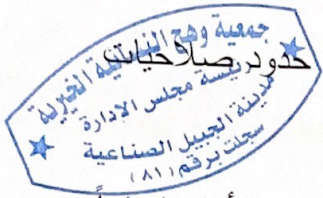 جمعية وهج النسائية الخيرية
حدود صلاحيات
رئيسة مجلس الادارة
مدينة الجبيل الصناعية
سجلت برقم (٨١)